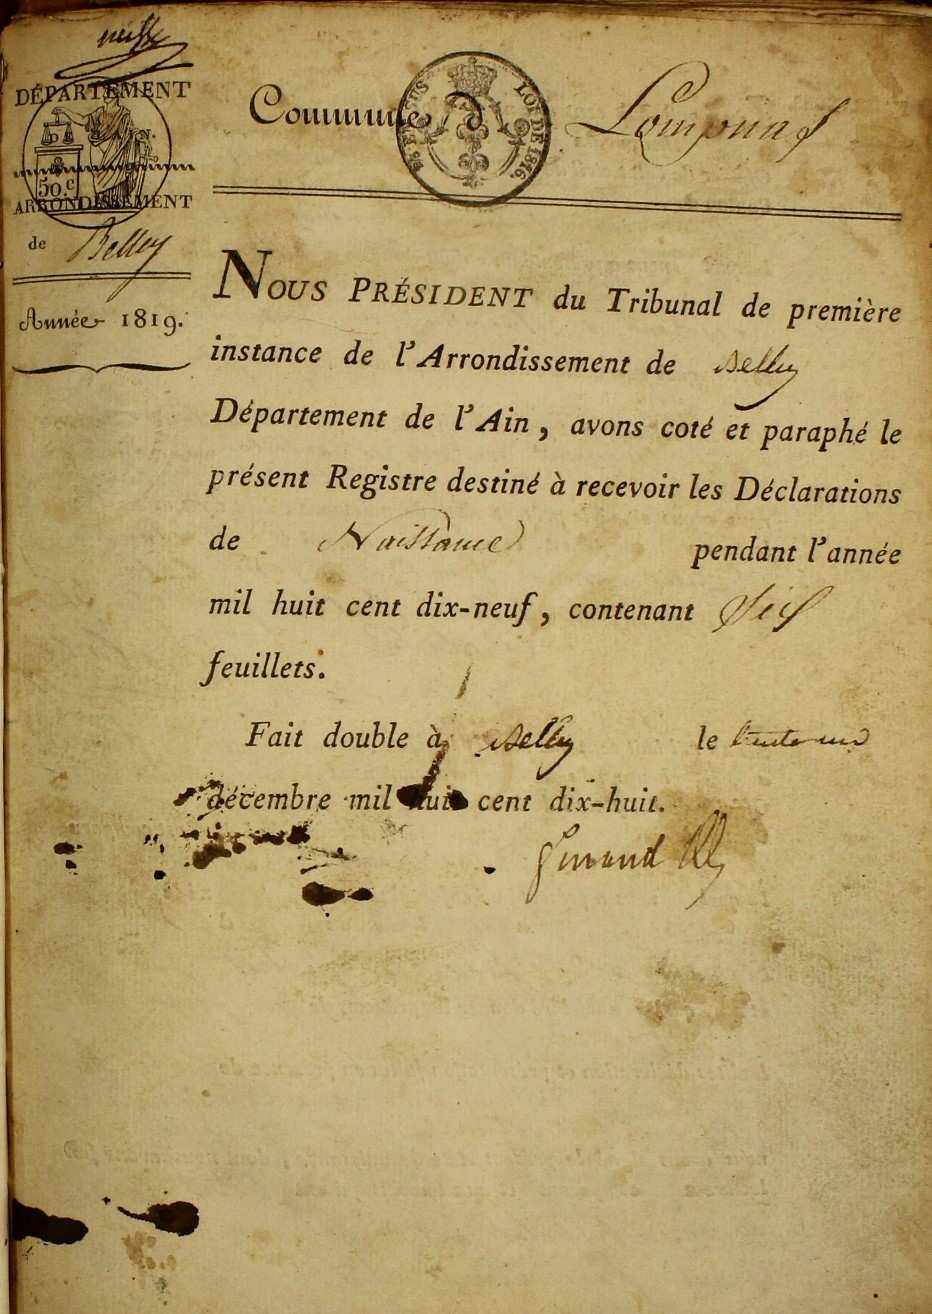 DÉPARTEMENT
50.c
ARRONDISSEMENT
de Belley
Année 1819.
Commune d
EN SUS LOI DE 1816.
Lompnas
NOUS PRÉSIDENT du Tribunal de première
instance de l'Arrondissement de Belley
Département de l'Ain, avons coté et paraphé le
présent Registre destiné à recevoir les Déclarations
de Naissance pendant l'année
mil huit cent dix-neuf, contenant Six
feuillets.
Fait double à Belley le trente un
décembre mil huit cent dix-huit.